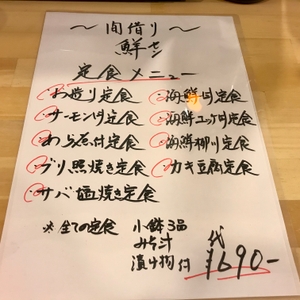 〜間借り〜
鮮せん
定食メニュー
お造り定食
サーモン丼定食
わら焼き定食
ブリ照焼き定食
サバ塩焼き定食
海鮮丼定食
海鮮ユッケ丼定食
海鮮柳川定食
カキ豆腐定食
※全ての定食
小鉢3品
みそ汁
漬け物付
¥690-